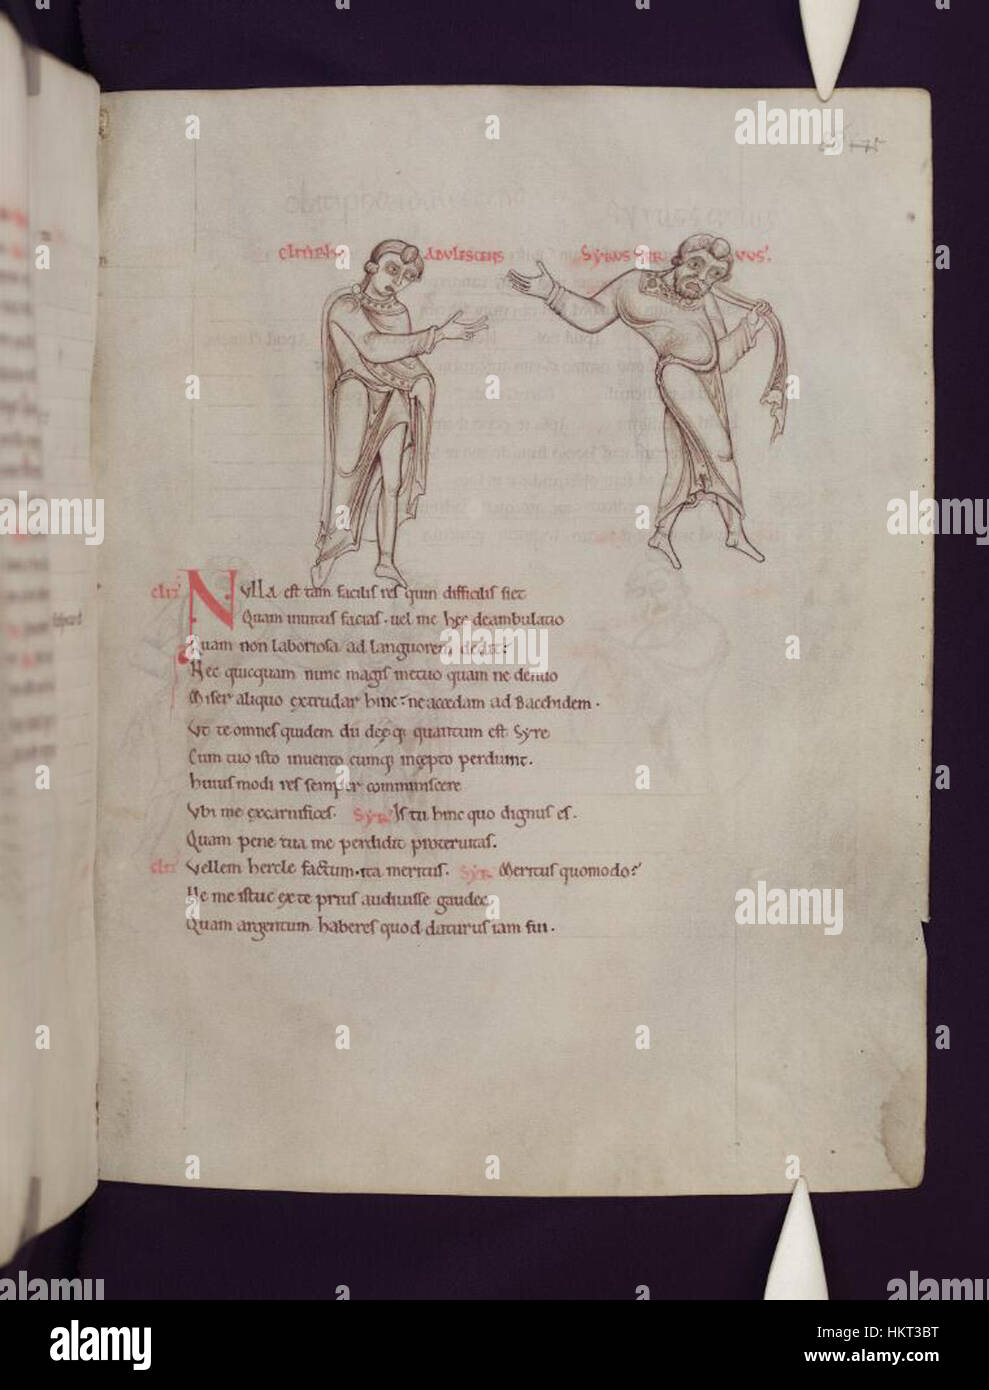 ADULESCENS SYRUS SER VUS.
clit. NVLLA est tam facilis res quin difficilis siet
Quam inuitus facias. uel me hec deambulatio
Quam non laboriosa ad languorem dedit:
Nec quicquam nunc magis metuo quam ne denuo
Miser aliquo extrudar hinc. ne accedam ad Bacchidem.
Vt te omnes quidem dii deęq; quantum est Syre
Cum tuo isto inuento cumq; incepto perdunt.
huius modi res semper comminiscere
Vbi me excarnifices. Syr. Is tu hinc quo dignus es.
Quam pene tua me perdidit proteruitas.
clit. Vellem hercle factum. ita meritus. Syr. Meritus quomodo?
Ne me istuc ex te prius audiuisse gaudeo
Quam argentum haberes quod daturus iam fui.
alamy
a
alamy
Image ID: HKT3BT
www.alamy.com